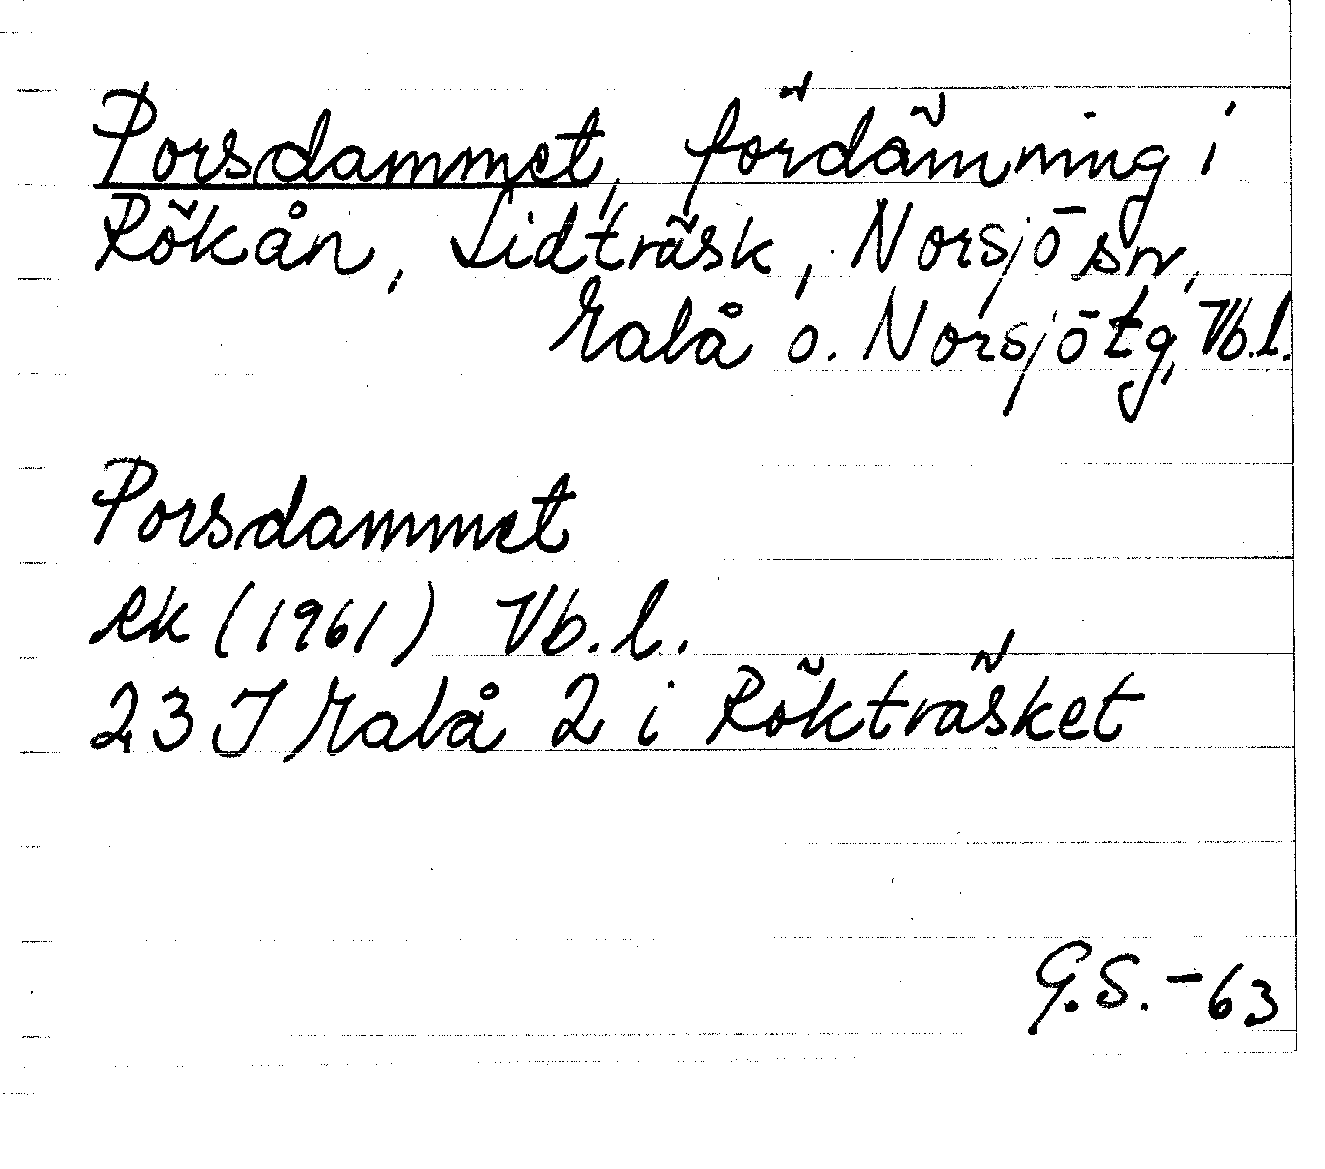 Porsdammet, fördämning i
Rökån, Lidträsk, Norsjö sn,
Malå o. Norsjö tg, Vb.l.
Porsdammet
ek (1961) Vb.l.
23 J Malå 2 i Rökträsket
G.S. -63